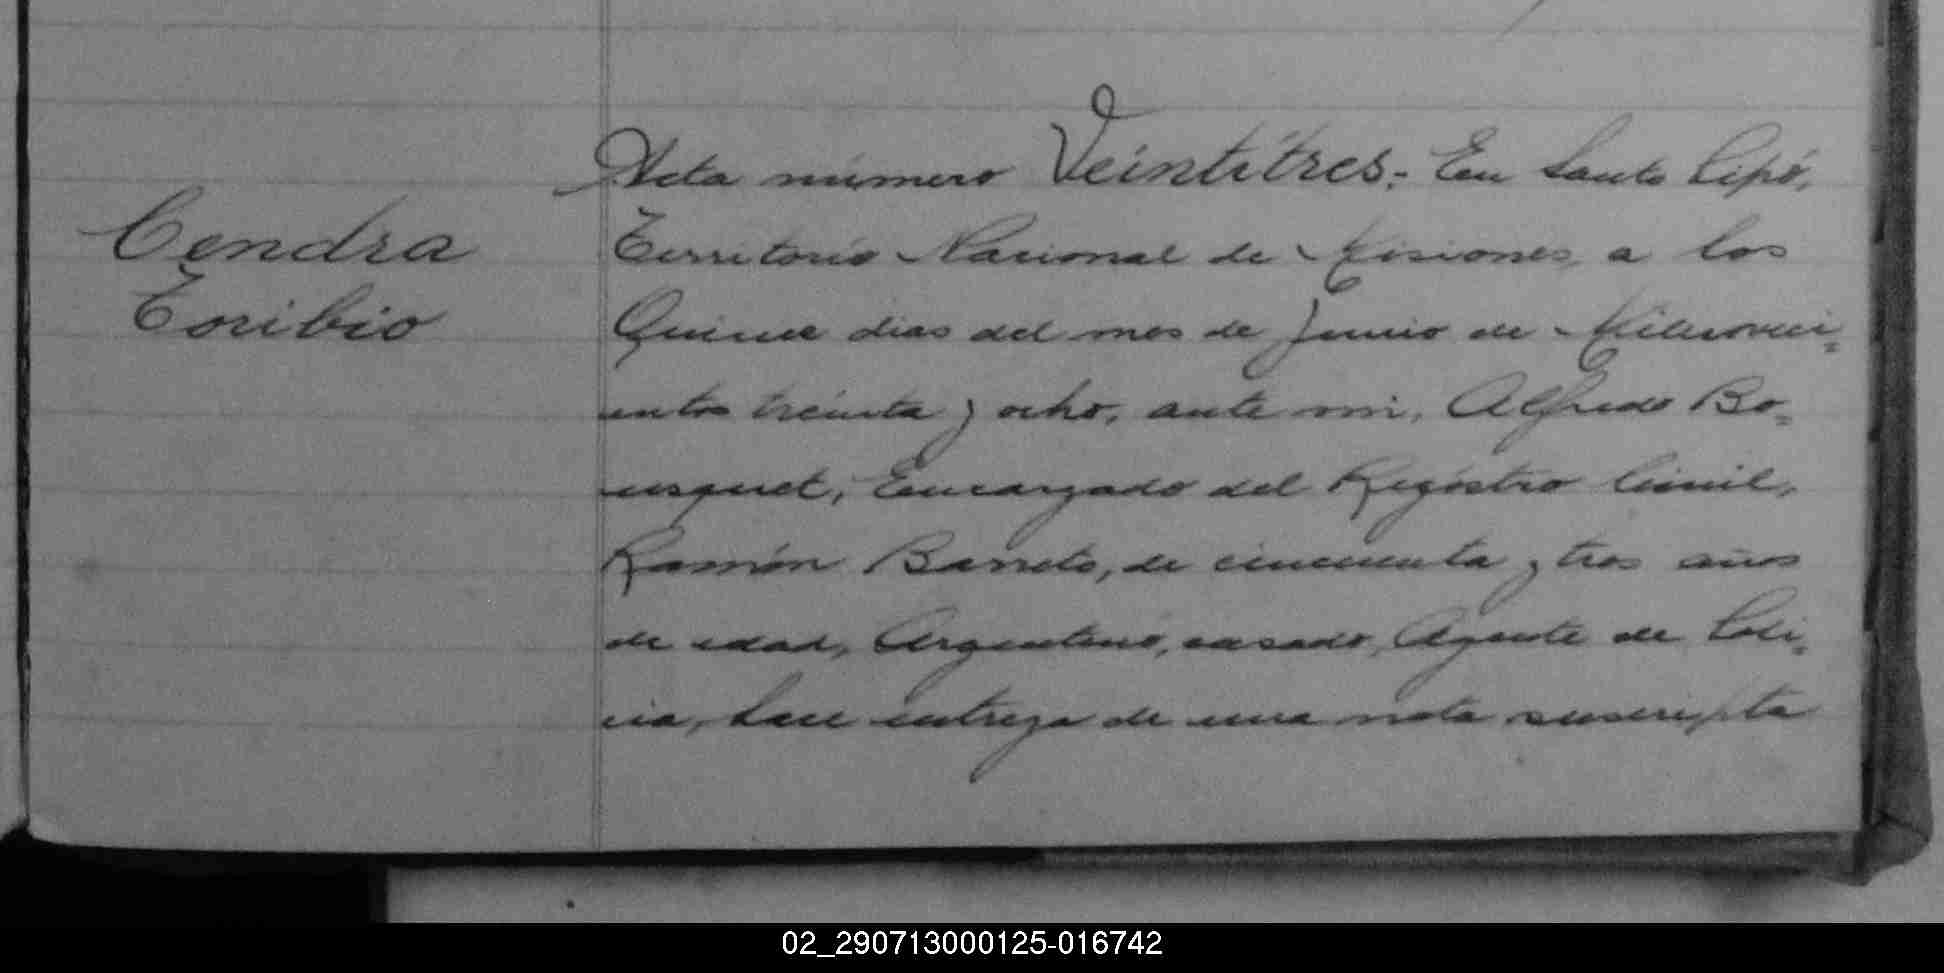 Cendra
Toribio
Acta número Veintitres.- En Santo Pipó,
Territorio Nacional de Misiones, a los
Quince dias del mes de Junio de Milnoveci=
entos treinta y ocho, ante mi, Alfredo Bo=
usquet, Encargado del Registro Civil,
Ramón Barreto, de cincuenta y tres años
de edad, Argentino, casado, Agente de Poli=
cia, hace entrega de una nota suscripta
02_290713000125-016742